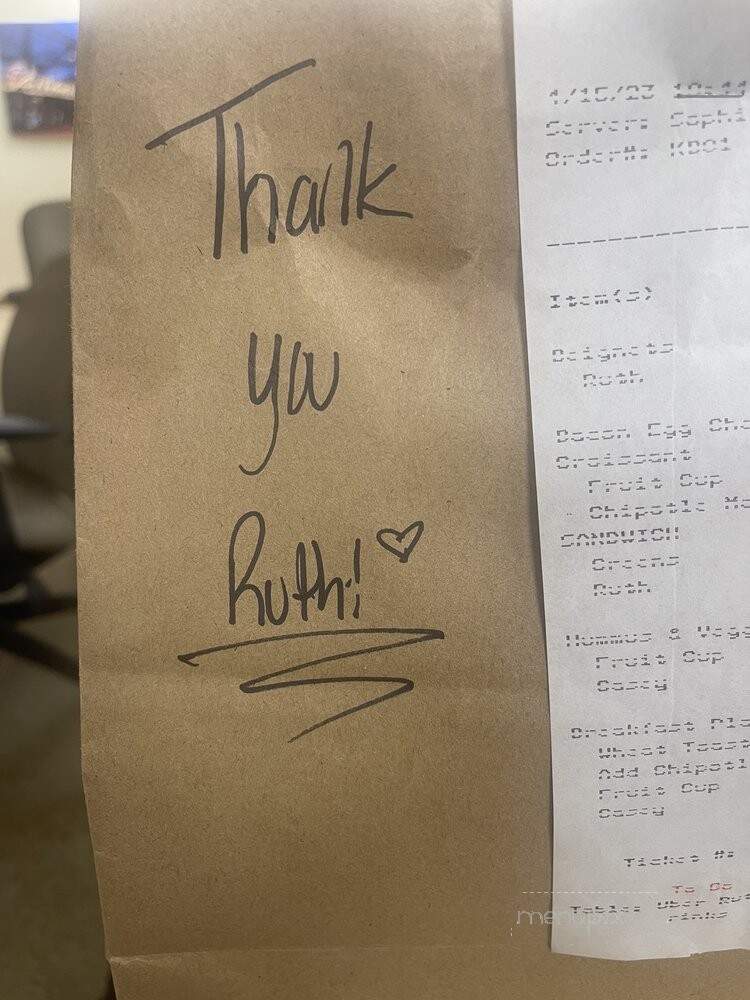 Thank
you
Ruth!
1/15/23
Server: Sophi
Order#: KD01
Item(s)
Beignets
Ruth
Bacon Egg Che
Croissant
Fruit Cup
Chipotle Ma
SANDWICH
Greens
Ruth
Hummus & Vegg
Fruit Cup
Casey
Breakfast Pla
Wheat Toast
Add Chipotl
Fruit Cup
Casey
Ticket #:
To Go
Table: Uber